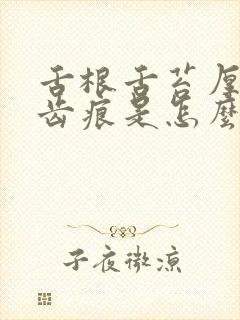 舌根舌苔厚
齿痕是怎麼
子夜微涼